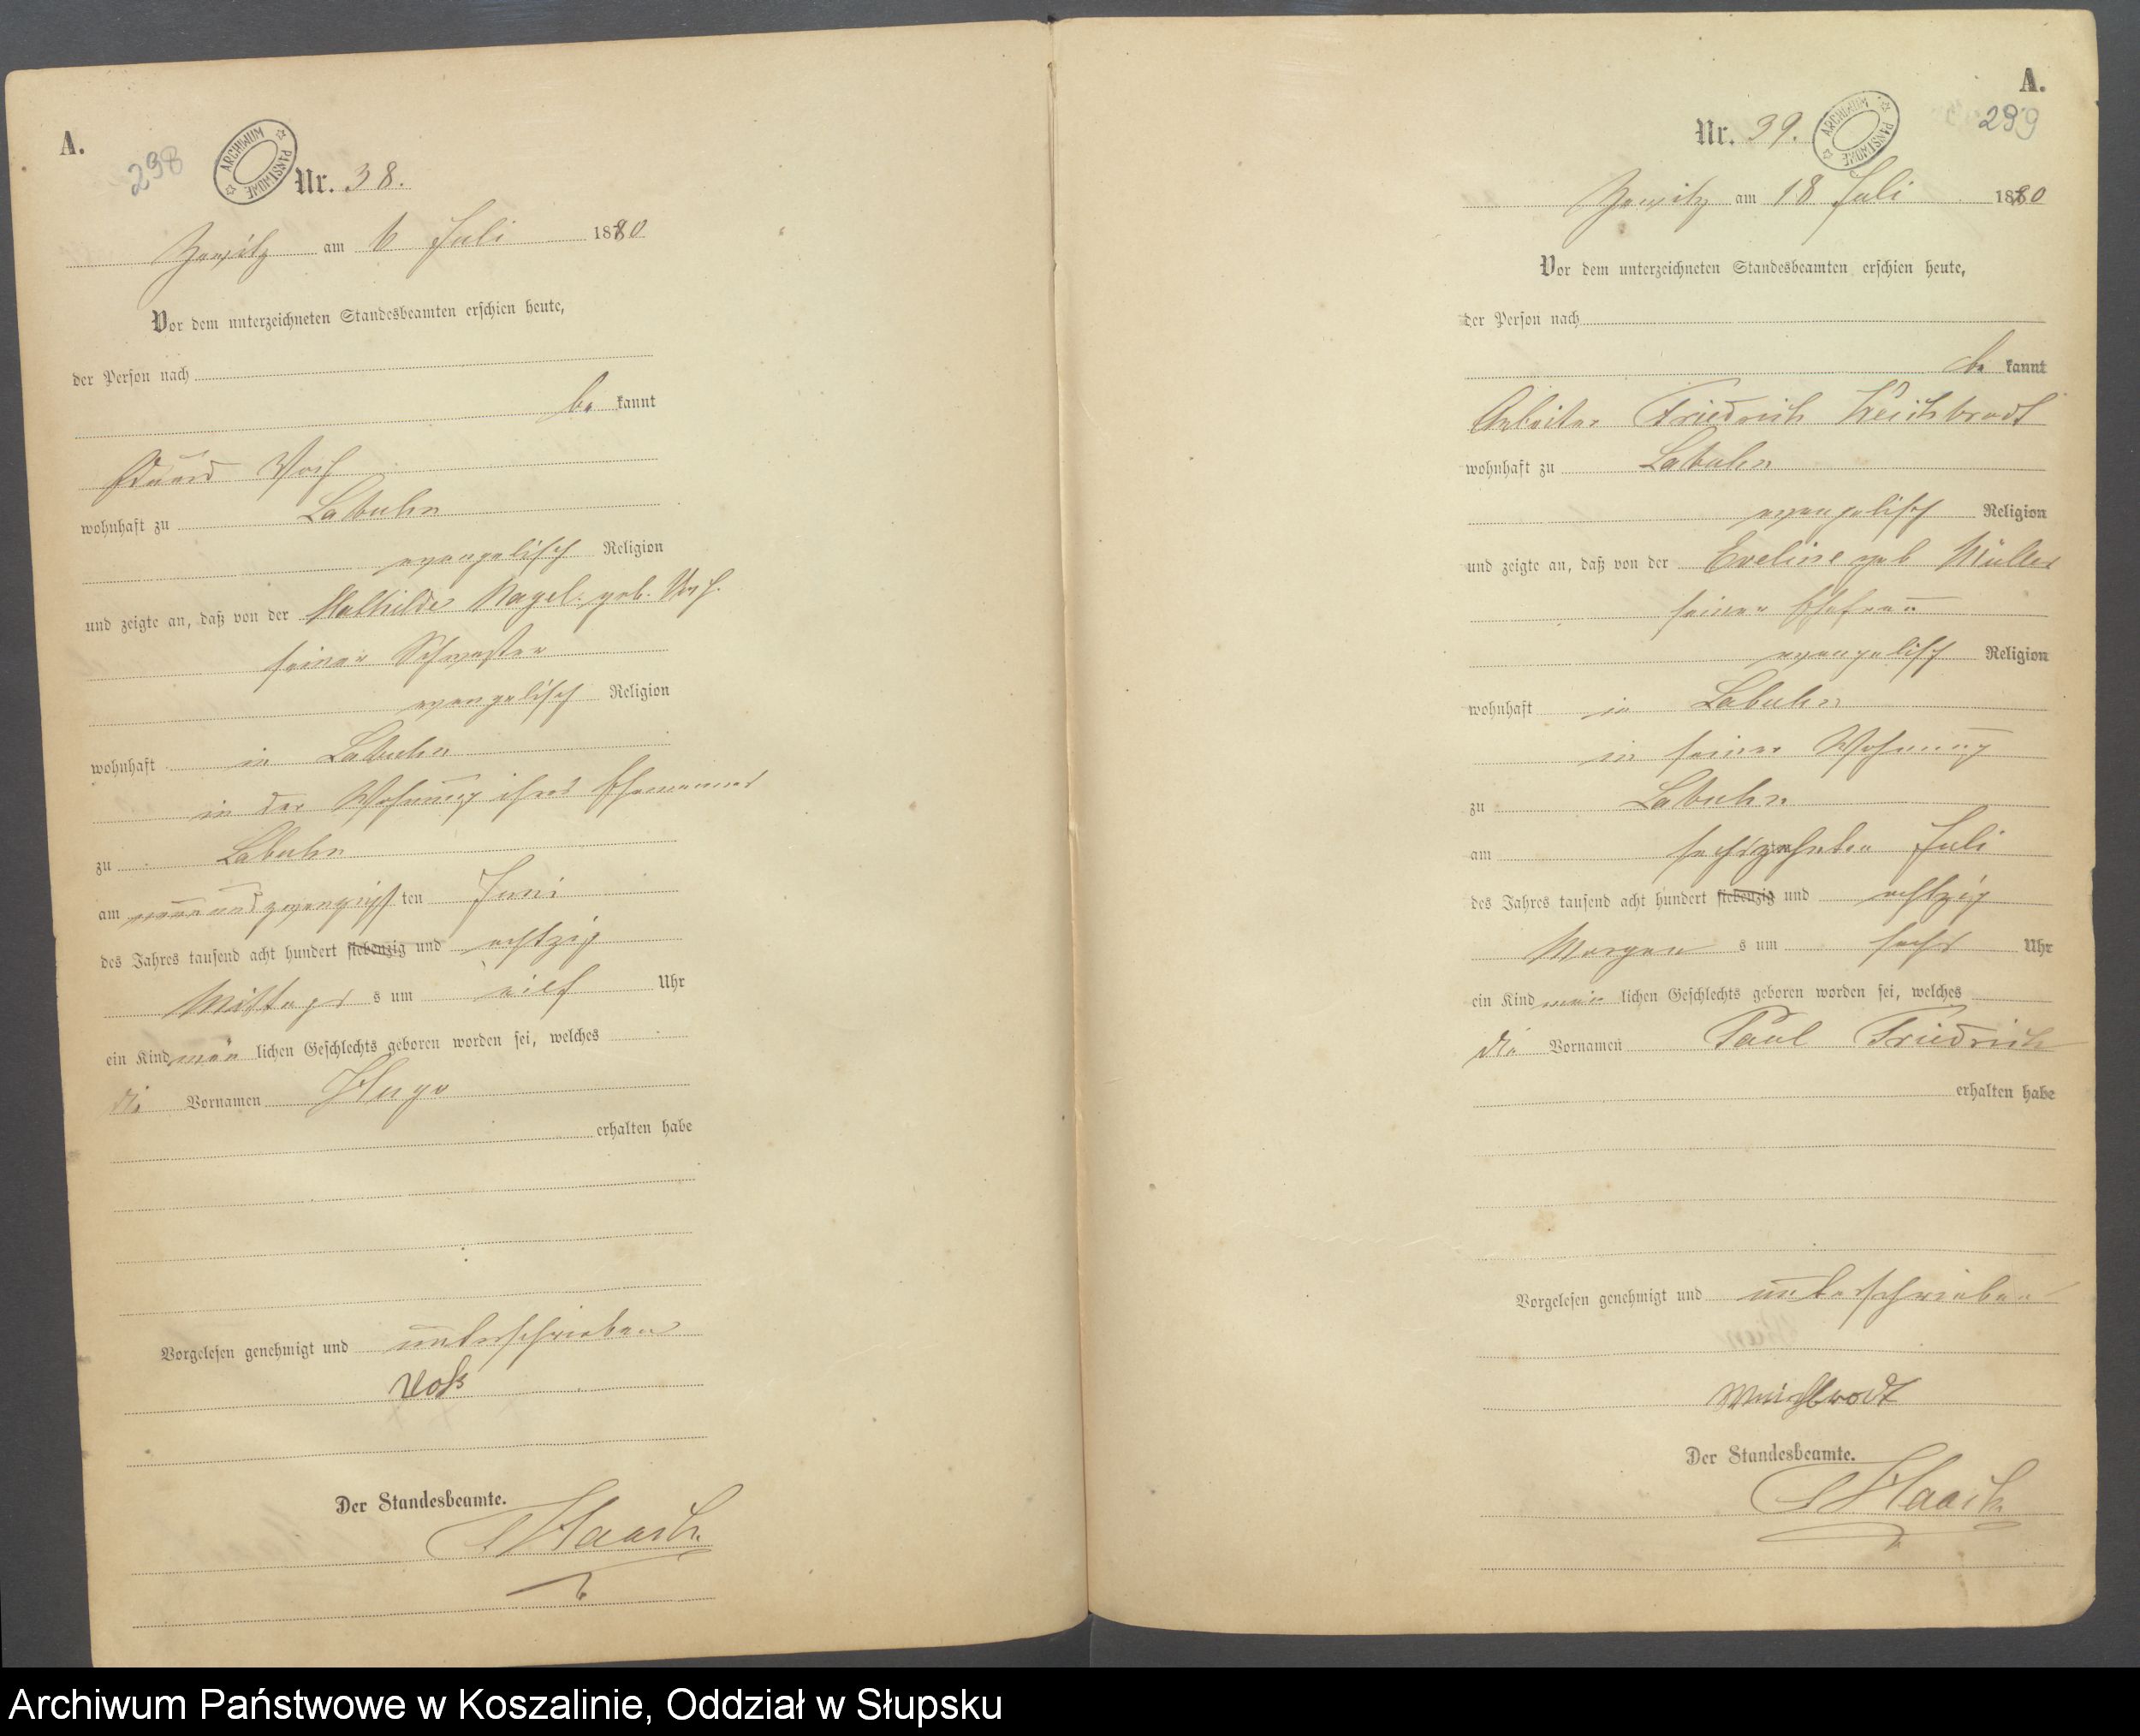 A.
298
ARCHIWUM PAŃSTWOWE
Nr. 38.
Zewitz am 6 Juli 1880
Vor dem unterzeichneten Standesbeamten erschien heute,
der Person nach
be kannt
Eduard Voß
wohnhaft zu Labuhn
evangelisch Religion
und zeigte an, daß von der Mathilde Nagel geb. Voß.
seiner Schwester
evangelisch Religion
wohnhaft in Labuhn
in der Wohnung ihres Ehemannes
zu Labuhn
am neunundzwanzigsten Juni
des Jahres tausend acht hundert siebenzig und achtzig
Mittags s um elf Uhr
ein Kind män lichen Geschlechts geboren worden sei, welches
die Vornamen Hugo
erhalten habe
Vorgelesen genehmigt und unterschrieben
Voß
Der Standesbeamte.
Haack
A.
299
ARCHIWUM PAŃSTWOWE
Nr. 39.
Zewitz am 18 Juli 1880
Vor dem unterzeichneten Standesbeamten erschien heute,
der Person nach
be kannt
Arbeiter Friedrich Weichbrodt
wohnhaft zu Labuhn
evangelisch Religion
und zeigte an, daß von der Eveline geb Müller
seiner Ehefrau
evangelisch Religion
wohnhaft in Labuhn
in seiner Wohnung
zu Labuhn
am sechszehnten Juli
des Jahres tausend acht hundert siebenzig und achtzig
Morgen s um sechs Uhr
ein Kind män lichen Geschlechts geboren worden sei, welches
die Vornamen Paul Friedrich
erhalten habe
Vorgelesen genehmigt und unterschrieben
Weichbrodt
Der Standesbeamte.
Haack
Archiwum Państwowe w Koszalinie, Oddział w Słupsku